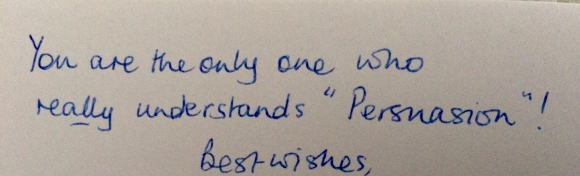 You are the only one who
really understands "Persuasion"!
Best wishes,